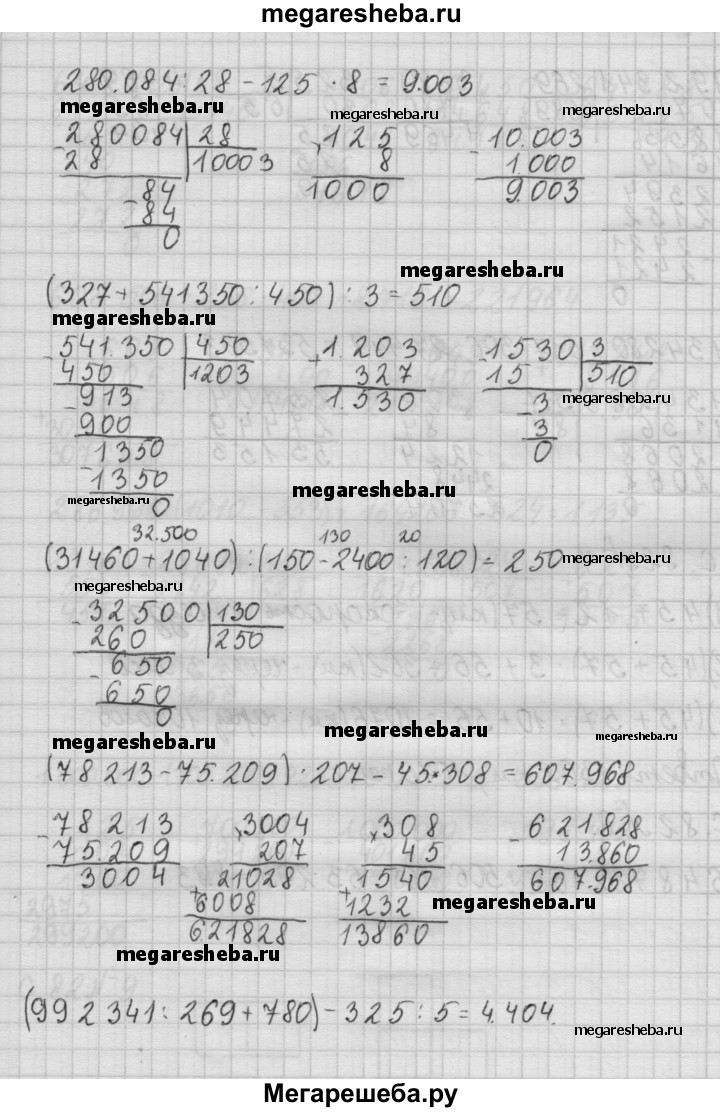 megaresheba.ru
280.084 : 28 - 125 · 8 = 9.003
megaresheba.ru megaresheba.ru megaresheba.ru
- 280084 | 28 × 125 - 10.003
28 | 10003 8 1.000
- 84 1000 9.003
84
0
megaresheba.ru
(327 + 541350 : 450) : 3 = 510
megaresheba.ru
- 541.350 | 450 + 1.203 - 1530 | 3
450 | 1203 327 15 | 510
- 913 1.530 - 3 megaresheba.ru
900 3
- 1350 0
1350
megaresheba.ru 0 megaresheba.ru
32.500 130 20
(31460 + 1040) : (150 - 2400 : 120) = 250 megaresheba.ru
megaresheba.ru
- 32500 | 130
260 | 250
- 650
650
0
megaresheba.ru megaresheba.ru megaresheba.ru
(78 213 - 75.209) · 207 - 45 · 308 = 607.968
- 78 213 × 3004 × 308 - 621.828
75.209 207 45 13.860
3004 + 21028 + 1540 607.968
6008 1232 megaresheba.ru
621828 13860
megaresheba.ru
(992 341 : 269 + 780) - 325 : 5 = 4.404.
megaresheba.ru
Мегарешеба.ру